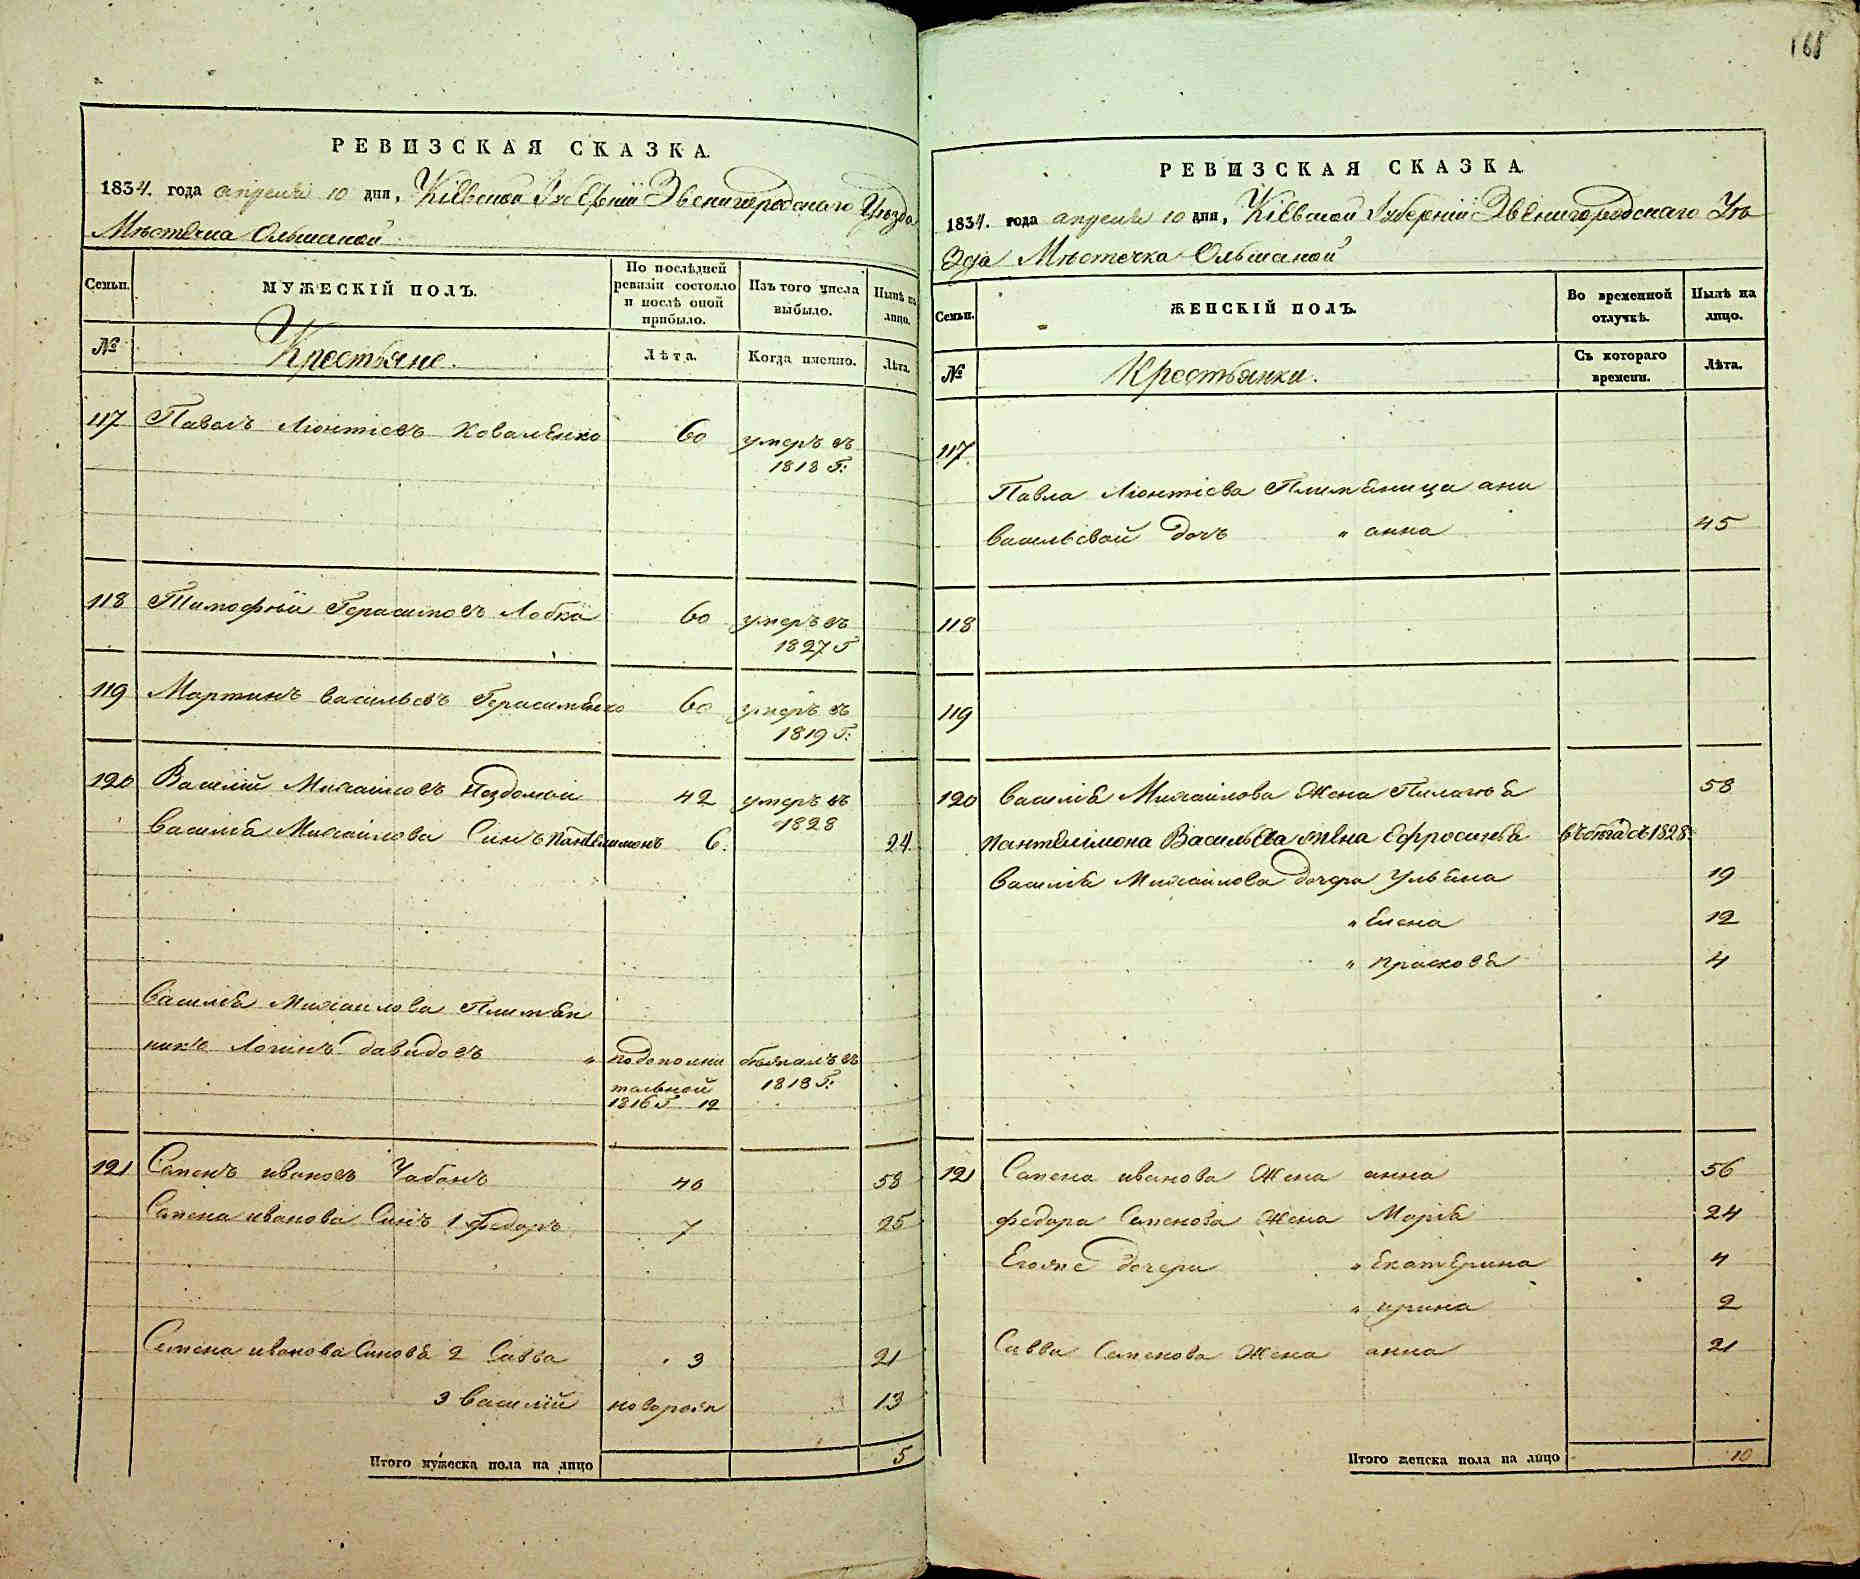 165
РЕВИЗСКАЯ СКАЗКА.
1834. года апреля 10 дня, Кіевской Губерніи Звенигородскаго Уѣзда
Мѣстечка Ольшаной
Семьи. МУЖЕСКІЙ ПОЛЪ. По послѣдней ревизіи состояло и послѣ оной прибыло. Изъ того числа выбыло. Нынѣ на лицо.
№ Крестьяне. Лѣта. Когда именно. Лѣта.
117 Павелъ Ліонтіевъ Коваленко 60 умеръ въ
1818 Г:
118 Тимофѣй Герасимовъ Лобка 60 умеръ въ
1827 Г
119 Мартинъ Васильевъ Герасименко 60 умеръ въ
1819 Г:
120 Василій Михайловъ 42 умеръ въ
1828
Василія Михайлова Синъ Пантелимонъ 6. 24.
Василія Михайлова Племян
никъ Логинъ Давидовъ " подополни бѣжалъ въ
тельной 1818 Г:
1816 Г 12
121 Семенъ Ивановъ Чабанъ 40 58
Семена Иванова Синъ 1 Федоръ 7 25
Семена Иванова Синовя 2 Савва 3 21
3 Василій новорож 13
Итого мужеска пола на лицо 5
РЕВИЗСКАЯ СКАЗКА.
1834. года апреля 10 дня, Кіевской Губерніи Звенигородскаго Уѣ
зда Мѣстечка Ольшаной
Семьи. ЖЕНСКІЙ ПОЛЪ. Во временной отлучкѣ. Нынѣ на лицо.
№ Крестьянки. Съ котораго времени. Лѣта.
117
Павла Ліонтіева Племяница
Васильевой дочь " анна 45
118
119
120 Василія Михайлова Жена Пелагея 58
Пантелимона Васильева жена Ефросинья 1828
Василія Михайлова дочери Ульяна 19
" Елена 12
" Прасковя 4
121 Семена Иванова Жена анна 56
Федора Семенова Жена Марія 24
Егоже дочери " Екатерина 4
" ирина 2
Савви Семенова Жена анна 21
Итого женска пола на лицо 10